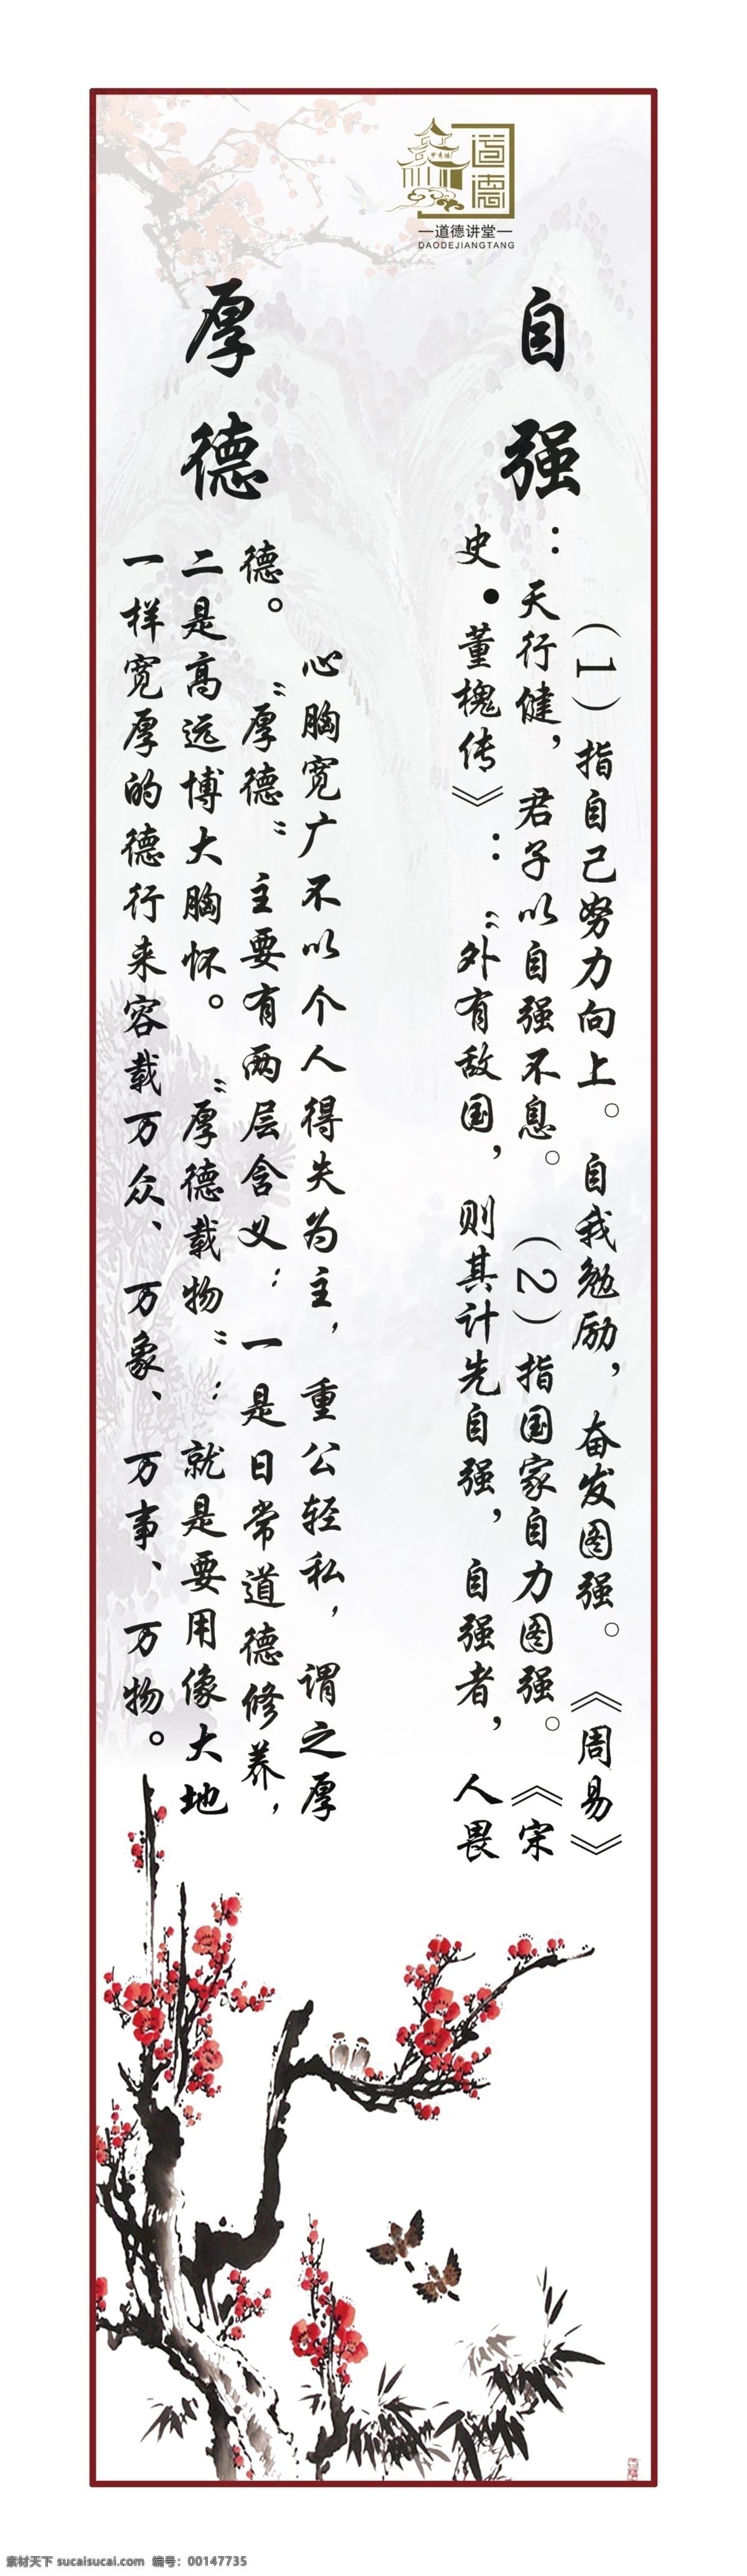 道德
一道德讲堂一
DAODEJIANGTANG
自强
（1）指自己努力向上。自我勉励，奋发图强。《周易》
：天行健，君子以自强不息。（2）指国家自力图强。《宋
史·董槐传》：“外有敌国，则其计先自强，自强者，人畏
厚德
心胸宽广不以个人得失为主，重公轻私，谓之厚
德。“厚德”主要有两层含义：一是日常道德修养，
二是高远博大胸怀。“厚德载物”：就是要用像大地
一样宽厚的德行来容载万众、万象、万事、万物。
素材天下 sucaisucai.com 编号：00147735